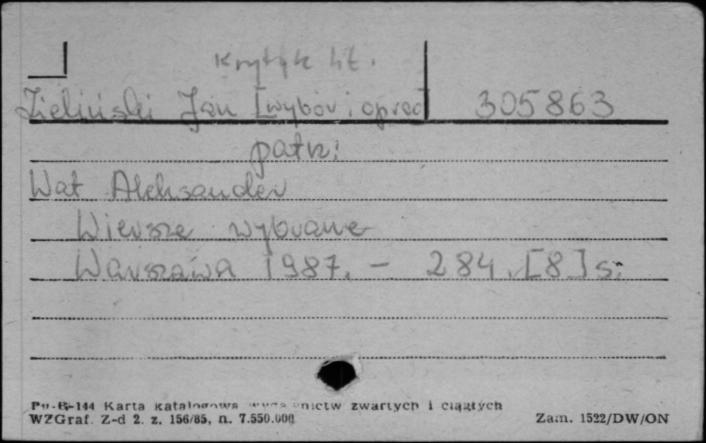 Krytyk lit.
Zieliński Jan [wybór i oprac] 305863
patrz:
Wat Aleksander
Wiersze wybrane
Warszawa 1987. - 284, [8] s.
Pu-B-144 Karta katalogowa zwartych i ciągłych
WZGraf. Z-d 2. z. 156/85, n. 7.550.000 Zam. 1522/DW/ON